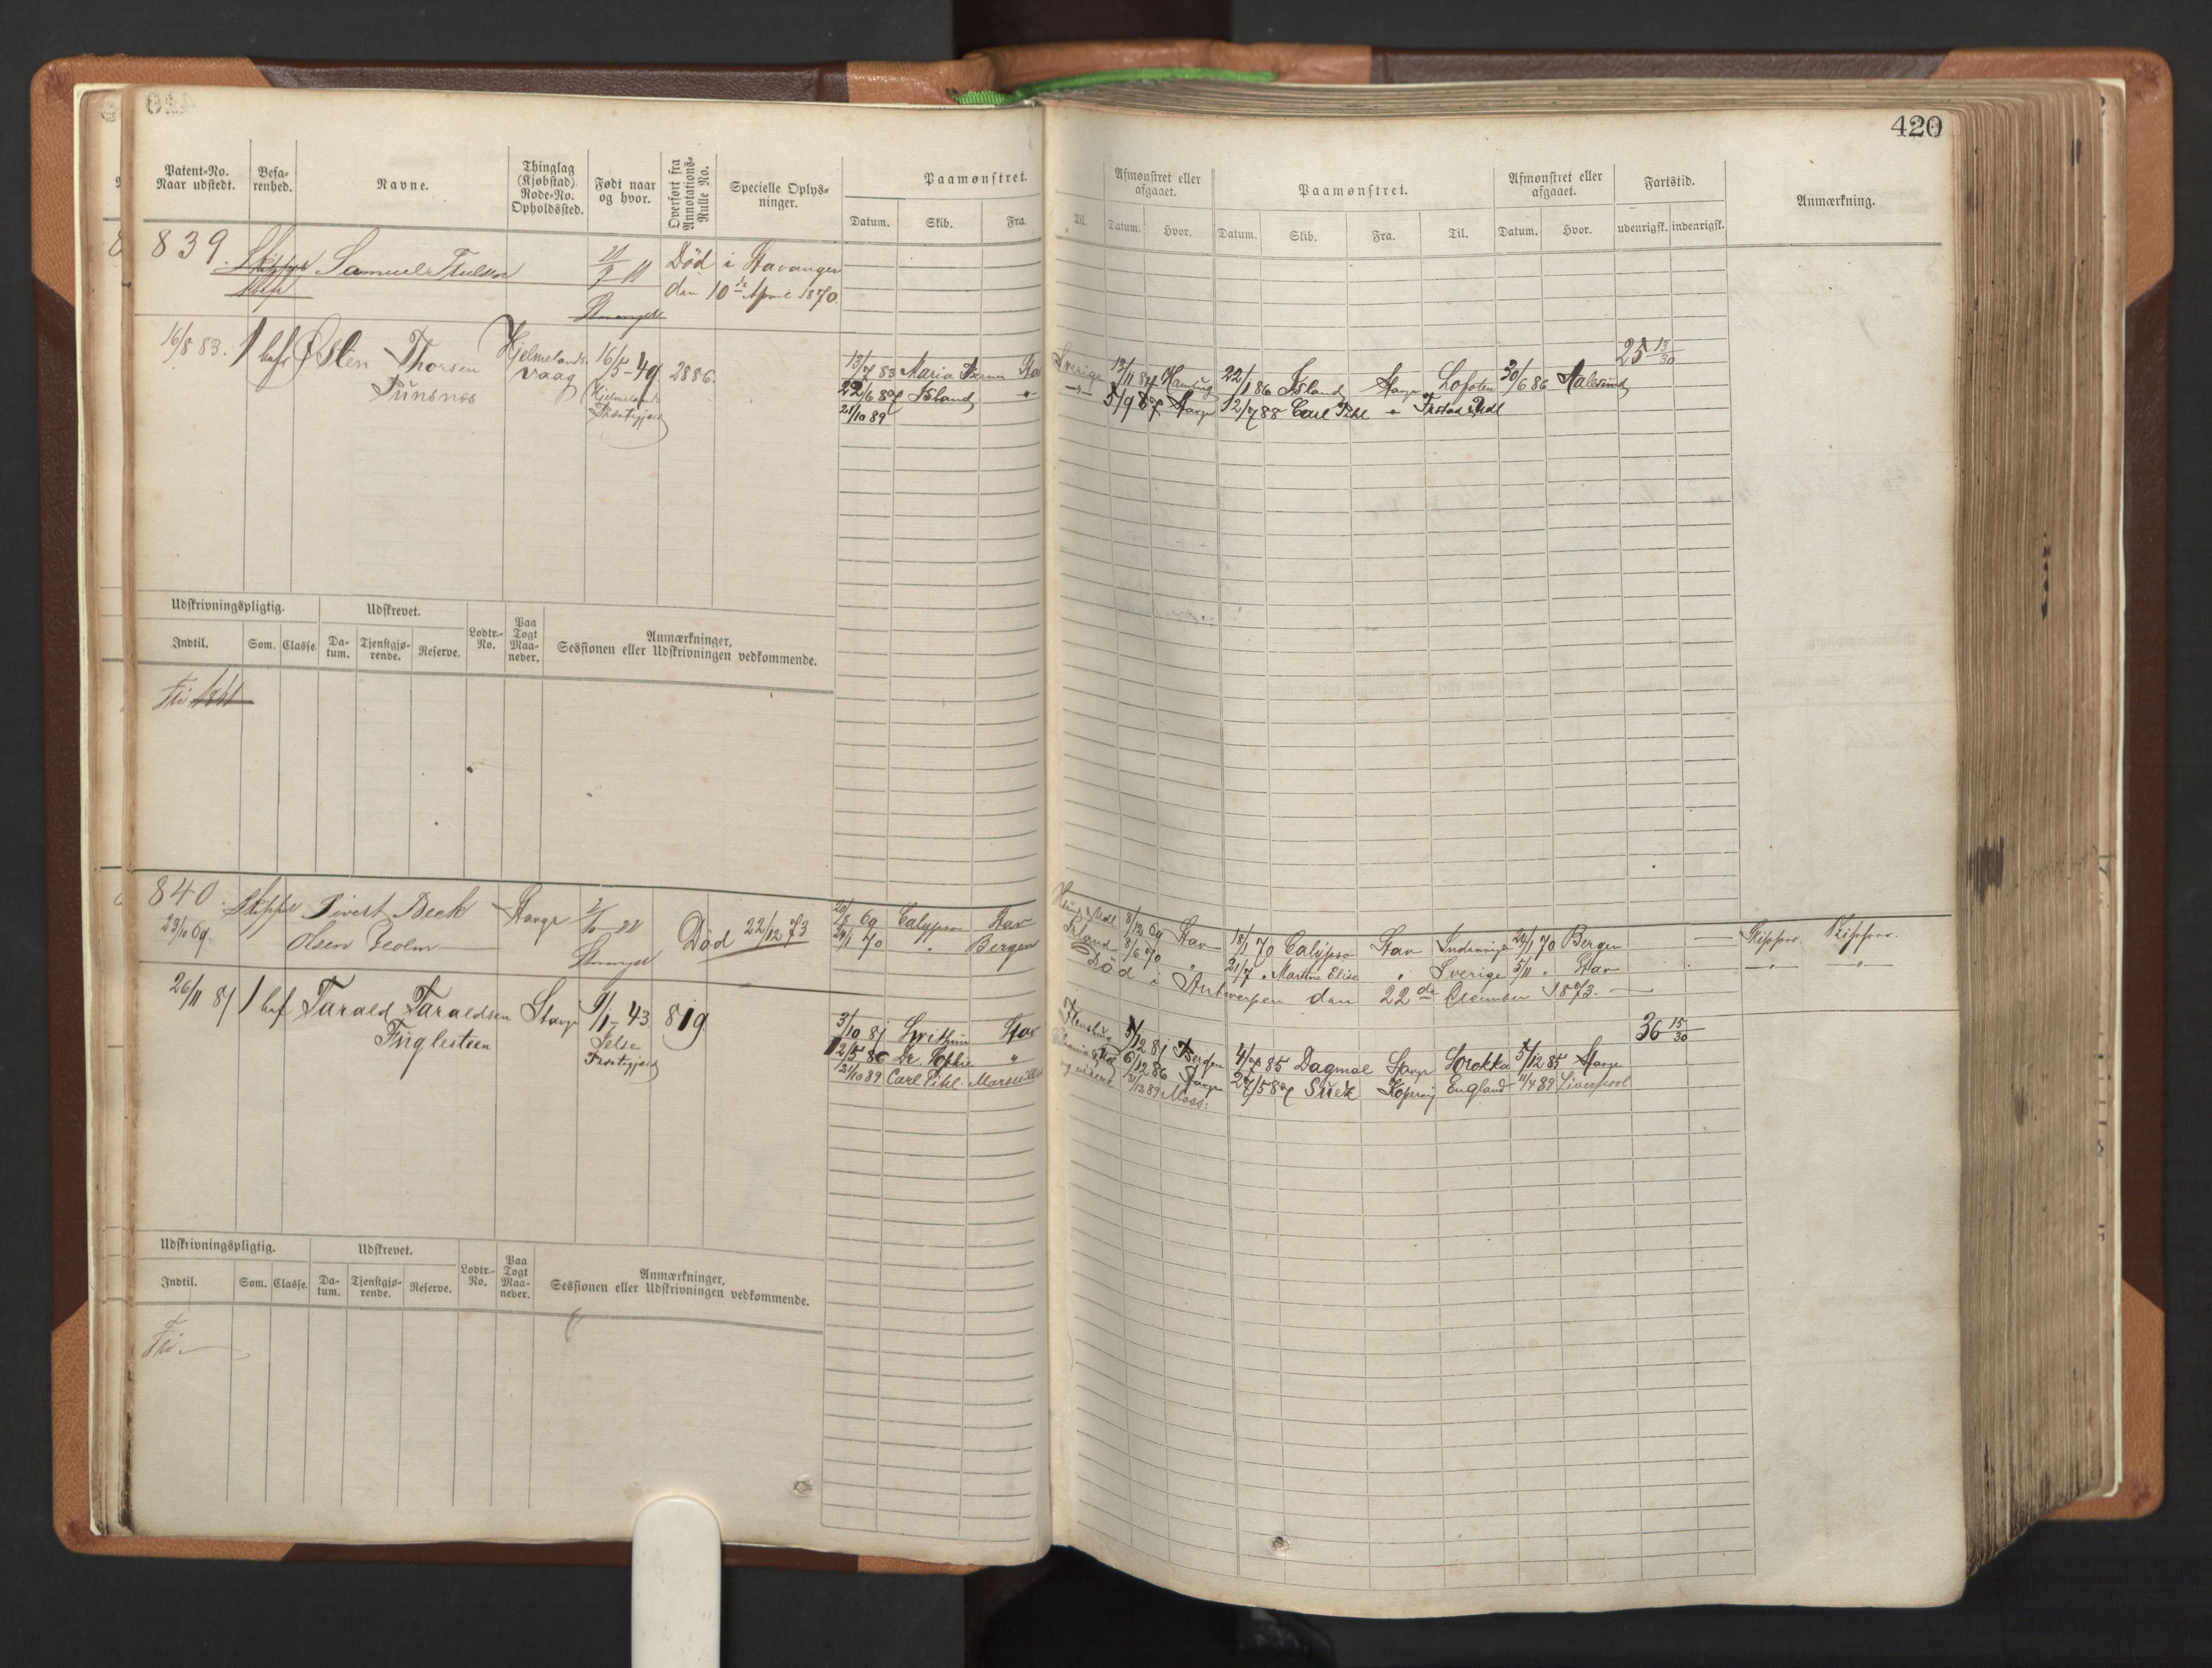 420
Patent-No. Naar udstedt.
Befarenhed.
Navne.
Thinglag (Kjøbstad). Rode-No. Opholdssted.
Født naar og hvor.
Overført fra Annotations-Rulle No.
Specielle Oplysninger.
Paamønstret.
Datum. Skib. Fra. Til.
Afmønstret eller afgaaet.
Datum. Hvor.
Paamønstret.
Datum. Skib. Fra. Til.
Afmønstret eller afgaaet.
Datum. Hvor.
Fartstid.
udenrigsk. indenrigsk.
Anmærkning.
839. Skipper Samuel 11 Død i Stavanger
den 10de April 1870.
16/8 83. 1 bef Østen Thorsen Hjelmelandsvaag 16/5-49 2886.
Hjelmelands Præstegjeld
25 13/30
13/7 83 Maria Sverige 13/11 84 22/1 86 Island Stavgr Lofoten 30/6 86 Aalesund
22/6 87 Island -"- -"- 5/9 87 Stavgr 12/7 88 Carl Pihl
21/10 89
Udskrivningspligtig.
Udskrevet.
Lodtr.-No.
Paa Togt Maaneder.
Anmærkninger, Sessionen eller Udskrivningen vedkommende.
Indtil. Som. Classe. Datum. Tjenstgjørende. Reserve.
Fri 1861
840. Skipper Sivert Beck Stavgr
23/10 69. Olsen Holm Død 22/12 73
69 Calypso Stav 8/12 69 Stav 18/1 70 Calypso Stav Indenrigs 24/1 70 Bergen Skipper. Skipper.
24/1 70 " Bergen Island 8/6 70 " 21/7 " Martine Elise " Sverige 5/11 " Stav -"- -"-
Død i Antwerpen den 22de December 1873.
26/11 81 1 bef Tarald Taraldsen Stavgr 9/1-43 819
Fuglesteen Præstegjeld
36 15/30
3/10 81 Svithun Stav Flensburg 5/12 81 Bergen 4/7 85 Dagmar Stavgr 5/12 85 Stavgr
12/5 86 Dr. Sophie " 6/12 86 Stavgr 27/5 87 Kopervig England 11/4 89 Liverpool
21/10 89 Carl Pihl Marseille og videre 3/12 89 Moss:
Udskrivningspligtig.
Udskrevet.
Lodtr.-No.
Paa Togt Maaneder.
Anmærkninger, Sessionen eller Udskrivningen vedkommende.
Indtil. Som. Classe. Datum. Tjenstgjørende. Reserve.
Fri